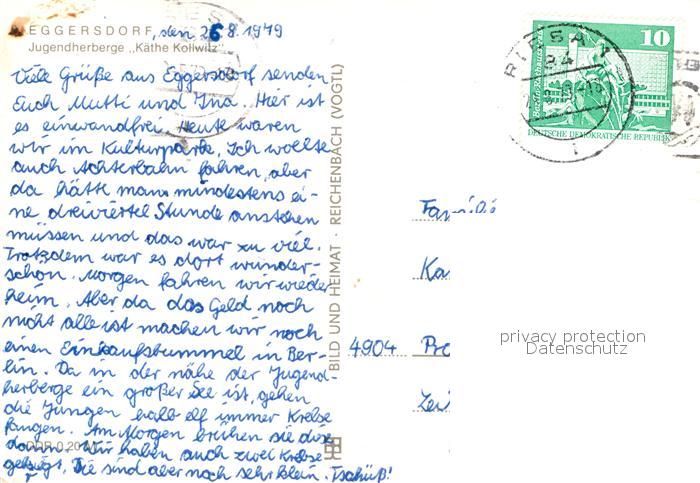 EGGERSDORF, den 26.8.1979
Jugendherberge „Käthe Kollwitz"
Viele Grüße aus Eggersdorf senden
Euch Mutti und Ina. Hier ist
es einwandfrei. Heute waren
wir im Kulturpark. Ich wollte
auch Achterbahn fahren, aber
da hätte man mindestens ei-
ne dreiviertel Stunde anstehen
müssen und das war zu viel.
Trotzdem war es dort wunder-
schön. Morgen fahren wir wieder
heim. Aber da das Geld noch
nicht alle ist machen wir noch
einen Einkaufsbummel in Ber-
lin. Da in der nähe der Jugend-
herberge ein großer See ist, gehen
die Jungen halb elf immer Krebse
fangen. Am Morgen brühen sie diese
dann. Wir haben auch zwei Krebse
gekriegt. Die sind aber noch sehr klein. Tschüß!
DDR 0,20 M
BILD UND HEIMAT · REICHENBACH (VOGTL)
10
DEUTSCHE DEMOKRATISCHE REPUBLIK
RIESA 1
Familie
Ka
4904 Pro
Zei
privacy protection
Datenschutz